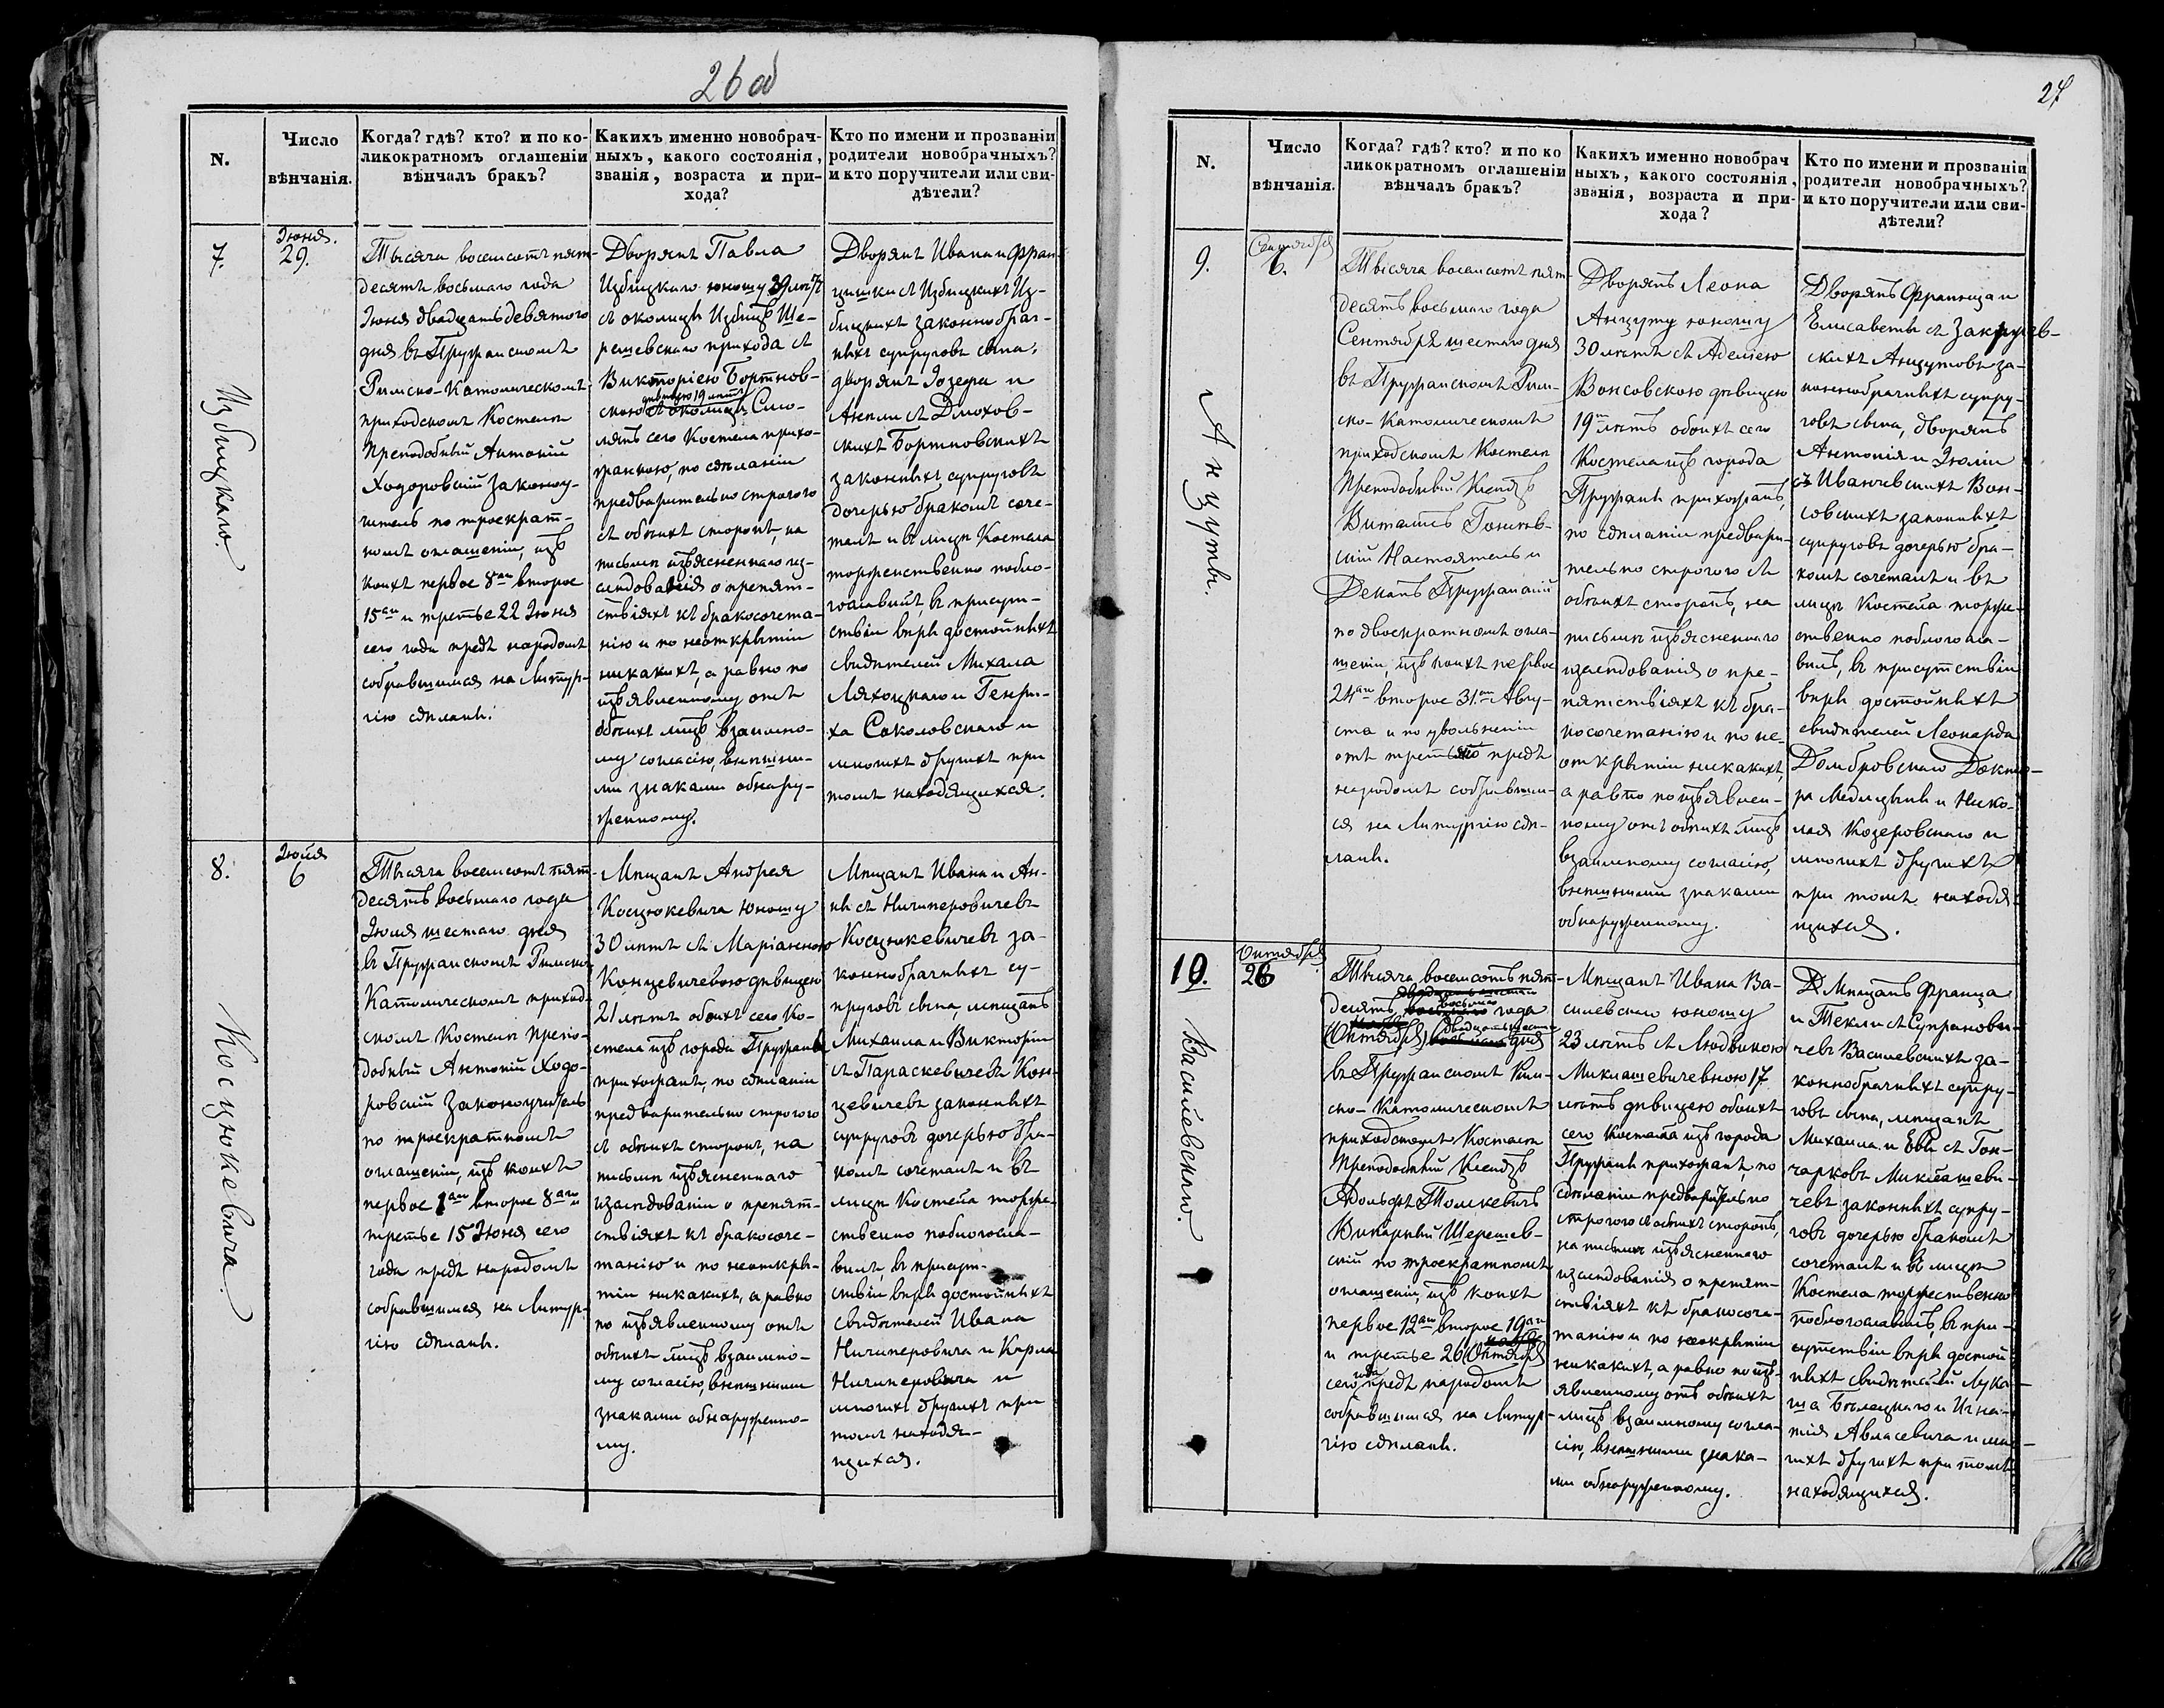 26 об
N.
Число
вѣнчанія.
Когда? гдѣ? кто? и по ко-
ликократномъ оглашеніи
вѣнчалъ бракъ?
Какихъ именно новобрач-
ныхъ, какого состоянія,
званія, возраста и при-
хода?
Кто по имени и прозванію
родители новобрачныхъ?
и кто поручители или сви-
дѣтели?
7.
Избицкаго.
Іюня.
29.
Тысяча восемсотъ пят-
десятъ восьмаго года
Іюня двадцать девятаго
дня въ Пружанскомъ
Римско-Католическомъ
приходскомъ Костелѣ
Преподобный Антоній
Ходоровскій Законоу-
читель по троекрат-
номъ оглашеніи, изъ
коихъ первое 8го второе
15го и третье 22 Іюня
сего года предъ народомъ
собравшимся на Литур-
гію сдѣланы.
Дворянъ Павла
Избицкаго юношу 39 лѣтъ
съ околицы Избицъ Ше-
решевскаго прихода съ
Викторіею Бортнов-
дѣвицею 19 лѣтъ
скою съ околицы Смо-
лянъ сего Костела прихо-
жанкою, по сдѣланіи
предварительно строгого
съ обоихъ сторонъ, на
письмѣ изъясненнаго из-
слѣдованія о препят-
ствіяхъ къ бракосочета-
нію и по неоткрытіи
никакихъ, а равно по
изъявленному отъ
обоихъ лицъ взаимно-
му согласію, внѣшни-
ми знаками обнару-
женному.
Дворянъ Ивана и Фран-
цишки съ Избицкихъ Из-
бицкихъ законнобрач-
ныхъ супруговъ сына,
дворянъ Іозефа и
Анели съ Дмохов-
скихъ Бортновскихъ
законныхъ супруговъ
дочерью бракомъ соче-
талъ и въ лицѣ Костела
торжественно побло-
гославилъ, въ присут-
ствіи вѣры достойныхъ
свидѣтелей Михала
Ляхоцкаго и Генри-
ха Соколовскаго и
многихъ другихъ при
томъ находящихся.
8.
Косцюкевича.
Іюля
6
Тысяча восемсотъ пят-
десятъ восьмаго года
Іюля шестаго дня
въ Пружанскомъ Римско
Католическомъ приход-
скомъ Костелѣ Препо-
добный Антоній Ходо-
ровскій Законоучитель
по троекратномъ
оглашеніи, изъ коихъ
первое 1го второе 8го и
третье 15 Іюня сего
года предъ народомъ
собравшимся на Литур-
гію сдѣланы.
Мѣщанъ Андрея
Косцюкевича юношу
30 лѣтъ съ Маріанною
Концевичевою дѣвицею
21 лѣтъ обоихъ сего Ко-
стела изъ города Пружанъ
прихожанъ, по сдѣланіи
предварительно строгого
съ обоихъ сторонъ, на
письмѣ изъясненнаго
изслѣдованіи о препят-
ствіяхъ къ бракосоче-
танію и по неоткры-
тіи никакихъ, а равно
по изъявленному отъ
обоихъ лицъ взаимно-
му согласію, внѣшними
знаками обнаруженно-
му.
Мѣщанъ Ивана и Ан-
ны съ Ничипоровичевъ
Косцюкевичевъ за-
коннобрачныхъ су-
пруговъ сына, мѣщанъ
Михаила и Викторіи
съ Параскевичевъ Кон-
цевичевъ законныхъ
супруговъ дочерью бра-
комъ сочеталъ и въ
лицѣ Костела торже-
ственно поблагосла-
вилъ, въ присут-
ствіи вѣры достойныхъ
свидѣтелей Ивана
Ничипоровича и Карла
Ничипоровича и
многихъ другихъ при
томъ находя-
щихся.
27
N.
Число
вѣнчанія.
Когда? гдѣ? кто? и по ко
ликократномъ оглашеніи
вѣнчалъ бракъ?
Какихъ именно новобрач
ныхъ, какого состоянія,
званія, возраста и при-
хода?
Кто по имени и прозванію
родители новобрачныхъ?
и кто поручители или сви-
дѣтели?
9.
Анцуты.
Сентября
6.
Тысяча восемсотъ пят-
десятъ восьмаго года
Сентября шестаго дня
въ Пружанскомъ Рим-
ско-Католическомъ
приходскомъ Костелѣ
Преподобный Ксіондзъ
Виталисъ
скій Настоятель и
Деканъ Пружанскій
по двоекратномъ огла-
шеніи, изъ коихъ первое
24го второе 31го Авгу-
ста и по увольненіи
отъ третьяго предъ
народомъ собравшим-
ся на Литургію сдѣ-
ланы.
Дворянъ Леона
Анцуту юношу
30 лѣтъ съ Аделіею
Вонсовскою дѣвицею
19 лѣтъ обоихъ сего
Костела изъ города
Пружанъ прихожанъ,
по сдѣланіи предвари-
тельно строгого съ
обоихъ сторонъ, на
письмѣ изъясненнаго
изслѣдованія о пре-
пятствіяхъ къ бра-
косочетанію и по не-
открытіи никакихъ,
а равно по изъявлен-
ному отъ обоихъ лицъ
взаимному согласію,
внѣшними знаками
обнаруженному.
Дворянъ Франца и
Елисаветы съ Закржев-
скихъ Анцутовъ за-
коннобрачныхъ супру-
говъ сына, дворянъ
Антонія и Юліи
съ Иванчевскихъ Вон-
совскихъ законныхъ
супруговъ дочерью бра-
комъ сочеталъ и въ
лицѣ Костела торже-
ственно поблагосла-
вилъ, въ присутствіи
вѣры достойныхъ
свидѣтелей Леонарда
Домбровскаго Докто-
ра Медицины и Нико-
лая Козеровскаго и
многихъ другихъ
при томъ находя-
щихся.
10.
Василевскаго.
Октября
26
Тысяча восемсотъ пят-
десятъ восьмаго года
Октября двадцать шестаго дня
въ Пружанскомъ Рим-
ско-Католическомъ
приходскомъ Костелѣ
Преподобный Ксіондзъ
Адольфъ Толкевичъ
Викарный Шерешев-
скій по троекратномъ
оглашеніи, изъ коихъ
первое 12го второе 19го
и третье 26 Октября
сего года предъ народомъ
собравшимся на Литур-
гію сдѣланы.
Мѣщанъ Ивана Ва-
силевскаго юношу
23 лѣтъ съ Людвикою
Миклашевичевною 17
лѣтъ дѣвицею обоихъ
сего Костела изъ города
Пружанъ прихожанъ, по
сдѣланіи предварительно
строгого съ обоихъ сторонъ,
на письмѣ изъясненнаго
изслѣдованія о препят-
ствіяхъ къ бракосоче-
танію и по неокрытіи
никакихъ, а равно по изъ-
явленному отъ обоихъ
лицъ взаимному согла-
сію, внѣшними знака-
ми обнаруженному.
Мѣщанъ Франца
и Текли съ Супранови-
чевъ Василевскихъ за-
коннобрачныхъ супру-
говъ сына, мѣщанъ
Михаила и Евы съ Гон-
чарковъ Миклашеви-
чевъ законныхъ супру-
говъ дочерью бракомъ
сочеталъ и въ лицѣ
Костела торжественно
поблагославилъ, въ при-
сутствіи вѣры достой
ныхъ свидѣтелей Лука-
ша и Игна-
тія Авласевича и мно-
гихъ другихъ при томъ
находящихся.